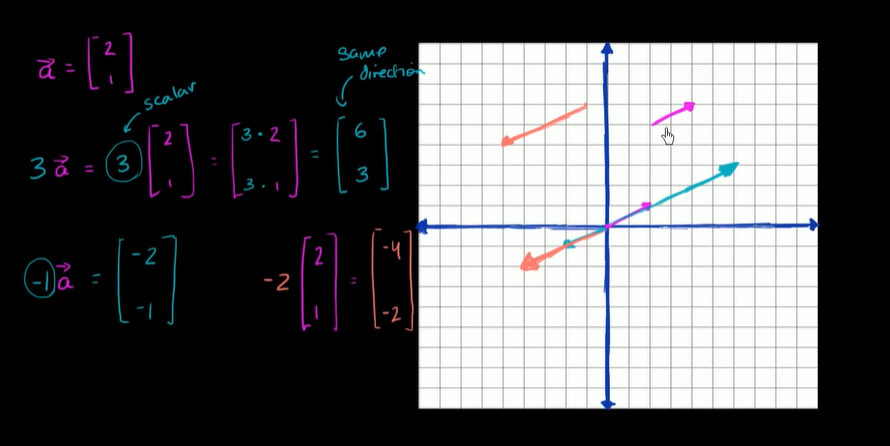 a⃗ = [2 1]
scalar
same direction
3a⃗ = 3 [2 1] = [3·2 3·1] = [6 3]
-1a⃗ = [-2 -1]
-2 [2 1] = [-4 -2]